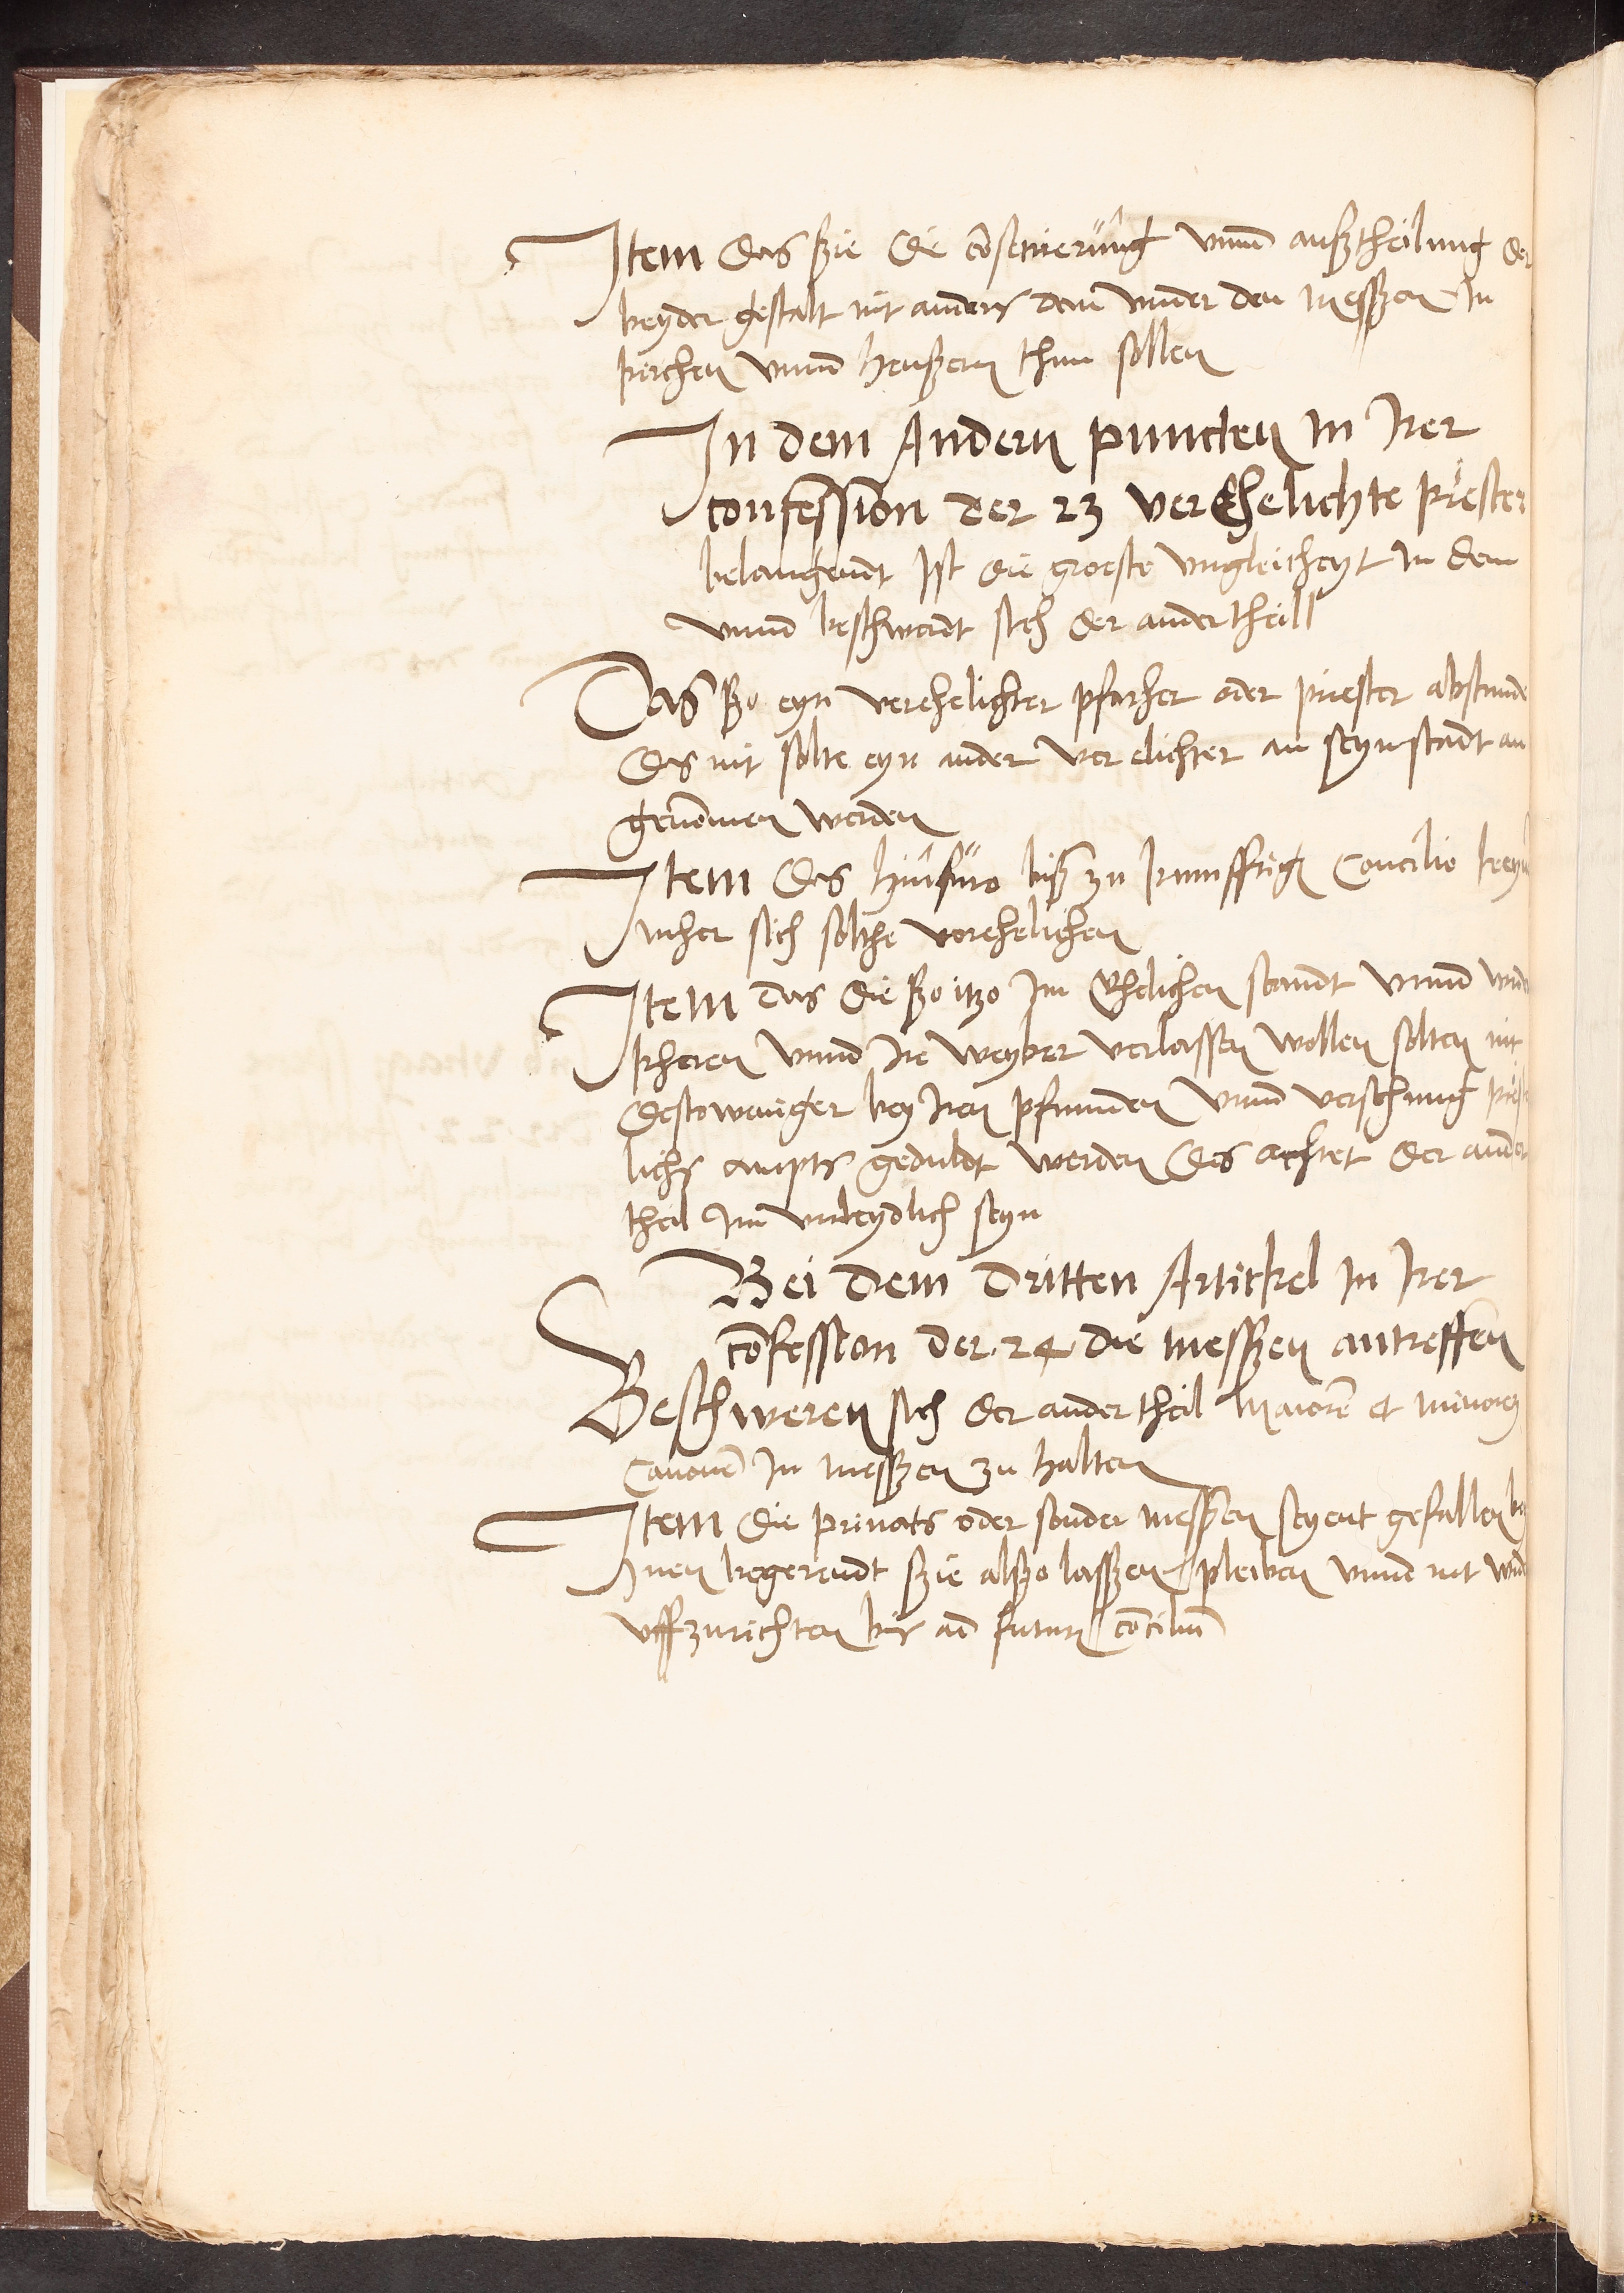 Item das ßie die cōsecrierung vnnd außtheilung der
beyder gestalt nit anders dem vnnder den messzen In
kirchen vnnd heußern thun sollen
In dem Andern puncten In Irer
confession der 23 verEhelichte priester
belangendt Ist die groeste vngleicheyt In dem
vnnd beschwerdt sich der ander theill
Das ßo eyn verehelichter pfarher oder priester abstunde
Das nit solte eyn ander ver elichter an seyn stadt an
genōmen werden
Item das hinfuro biß zu kunfftigē Concilio keyn
meher sich solthe vorehelichen
Item das die ßo itzo Im Ehelichen standt vnnd
kheren vnnd Ire weyber verlassen wollen solten nit
destoweniger bey Iren pfrunden vnnd versehung
lichs ampts geduldt werden Das achtet der ander
theil Im vnleydlich seyn
Bei dem dritten Artickel In Irer
cōfession der 24 die messzen antreffen
Beschweren sich der ander theil Maiorē et minorē
Canonē In messzen zu halten
Item die priuats oder sonder messzen seyent gefallen bey
Inen begerendt ßie alßo laßzen pleiben vnnd nit
vffzurichten bis ad futurū cōciliū